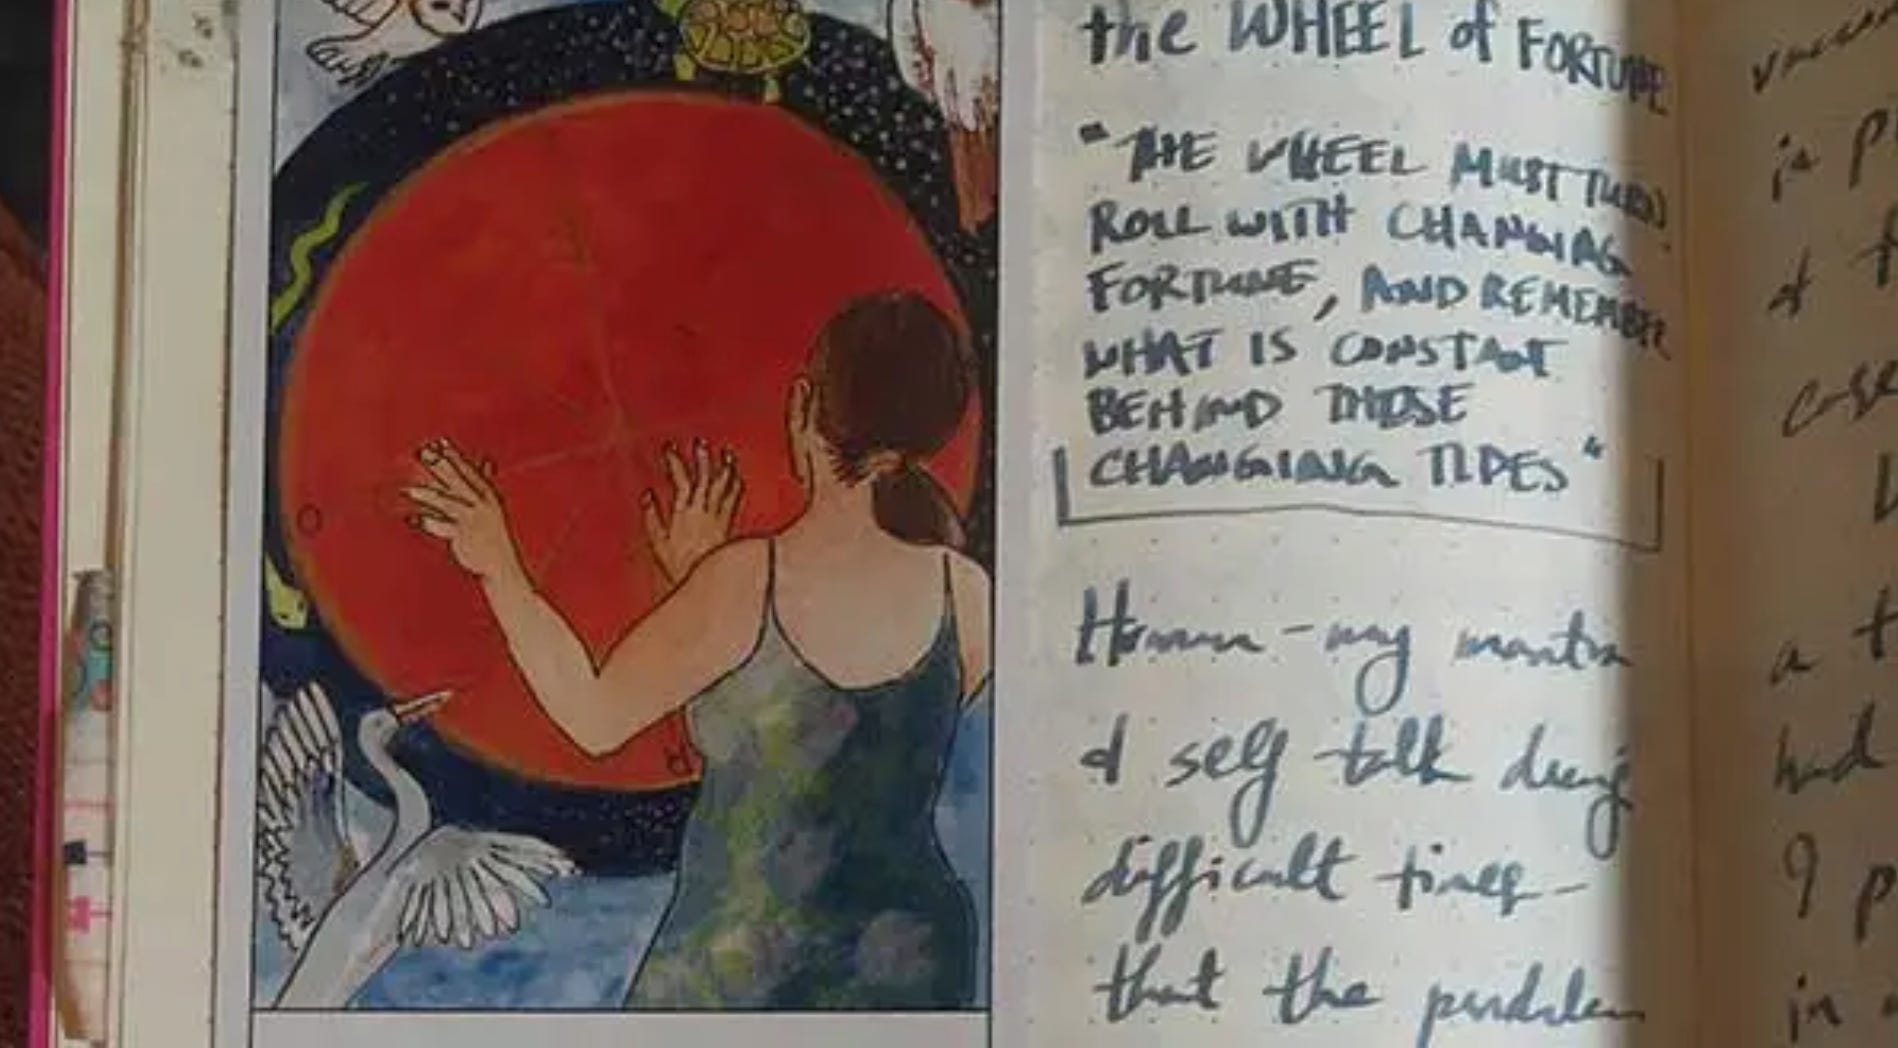 the WHEEL of FORTUNE
"THE WHEEL MUST TURN
ROLL WITH CHANGING
FORTUNE, AND REMEMBER
WHAT IS CONSTANT
BEHIND THOSE
CHANGING TIDES"
- my mantra
& self talk during
difficult times -
that the problem
is
of
case
a
had
I
in
O
R